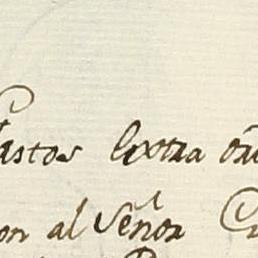 Gastos Extra
on al Señor